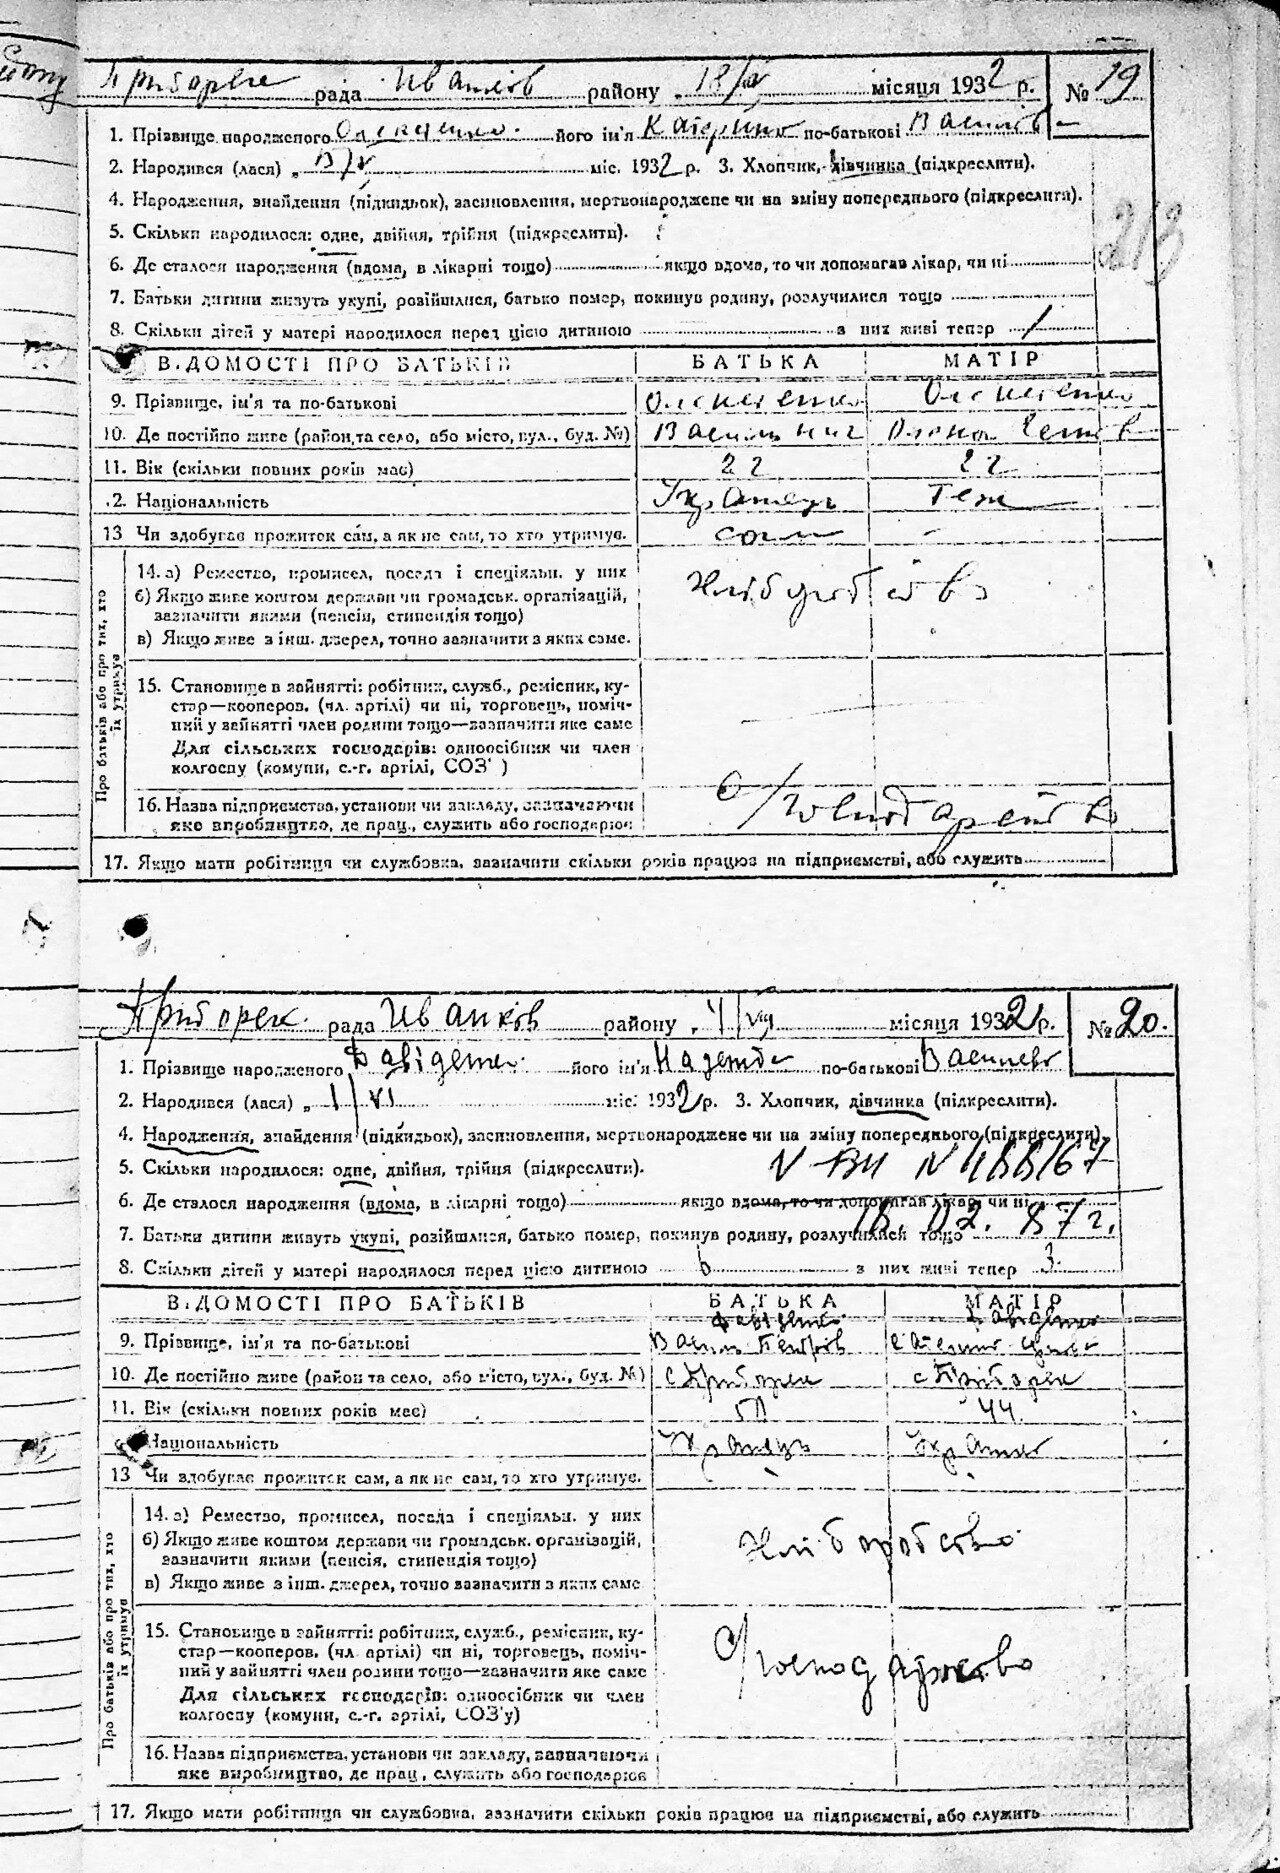 рада Иванков району 18/V місяця 1932 р. № 19
1. Прізвище народженого його ім'я по-батькові
2. Народився (лася) „ міс. 1932 р. 3. Хлопчик, дівчинка (підкреслити).
4. Народження, знайдення (підкидьок), засиновлення, мертвонароджене чи на зміну попереднього (підкреслити).
5. Скільки народилося: одне, двійня, трійня (підкреслити).
6. Де сталося народження (вдома, в лікарні тощо) якщо вдома, то чи допомагав лікар, чи ні
7. Батьки дитини живуть укупі, розійшлися, батько помер, покинув родину, розлучилися тощо
8. Скільки дітей у матері народилося перед цією дитиною з них живі тепер 1
213
ВІДОМОСТІ ПРО БАТЬКІВ БАТЬКА МАТІР
9. Прізвище, ім'я та по-батькові
10. Де постійно живе (район та село, або місто, вул., буд. №) Олена
11. Вік (скільки повних років має) 22 22
12. Національність Українець теж
13 Чи здобуває прожиток сам, а як не сам, то хто утримує. сам -
Про батьків або про тих, хто їх утримує
14. а) Ремество, промисел, посада і спеціяльн. у них
б) Якщо живе коштом держави чи громадськ. організацій, зазначити якими (пенсія, стипендія тощо)
в) Якщо живе з інш. джерел, точно зазначити з яких саме.
Хліборобство
15. Становище в зайнятті: робітник, служб., ремісник, ку-
стар—кооперов. (чл. артілі) чи ні, торговець, поміч-
ний у зайнятті член родини тощо—зазначити яке саме
Для сільських господарів: одноосібник чи член
колгоспу (комуни, с.-г. артілі, СОЗ )
16. Назва підприємства, установи чи закладу, зазначаючи
яке виробництво, де прац., служить або господарює
С/господарство
17. Якщо мати робітниця чи службовка, зазначити скільки років працює на підприємстві, або служить
Приборск рада Иванков району „ 4/VIII місяця 1932 р. № 20.
1. Прізвище народженого Давіденко його ім'я Надежда по-батькові
2. Народився (лася) „ 1/VI міс. 1932 р. 3. Хлопчик, дівчинка (підкреслити).
4. Народження, знайдення (підкидьок), засиновлення, мертвонароджене чи на зміну попереднього (підкреслити).
5. Скільки народилося: одне, двійня, трійня (підкреслити).
6. Де сталося народження (вдома, в лікарні тощо) якщо вдома, то чи допомагав лікар, чи ні
7. Батьки дитини живуть укупі, розійшлися, батько помер, покинув родину, розлучилися тощо
8. Скільки дітей у матері народилося перед цією дитиною 6 з них живі тепер 3
ВІДОМОСТІ ПРО БАТЬКІВ БАТЬКА МАТІР
9. Прізвище, ім'я та по-батькові
10. Де постійно живе (район та село, або місто, вул., буд. №) с Приборск с Приборск
11. Вік (скільки повних років має) 44
Національність Українець
13 Чи здобуває прожиток сам, а як не сам, то хто утримує.
Про батьків або про тих, хто їх утримує
14. а) Ремество, промисел, посада і спеціяльн. у них
б) Якщо живе коштом держави чи громадськ. організацій,
зазначити якими (пенсія, стипендія тощо)
в) Якщо живе з інш. джерел, точно зазначити з яких саме
Хліборобство
15. Становище в зайнятті: робітник, служб., ремісник, ку-
стар—кооперов. (чл. артілі) чи ні, торговець, поміч-
ний у зайнятті член родини тощо—зазначити яке саме
Для сільських господарів: одноосібник чи член
колгоспу (комуни, с.-г. артілі, СОЗ'у)
С/господарство
16. Назва підприємства, установи чи закладу, зазначаючи
яке виробництво, де прац., служить або господарює
17. Якщо мати робітниця чи службовка, зазначити скільки років працює на підприємстві, або служить